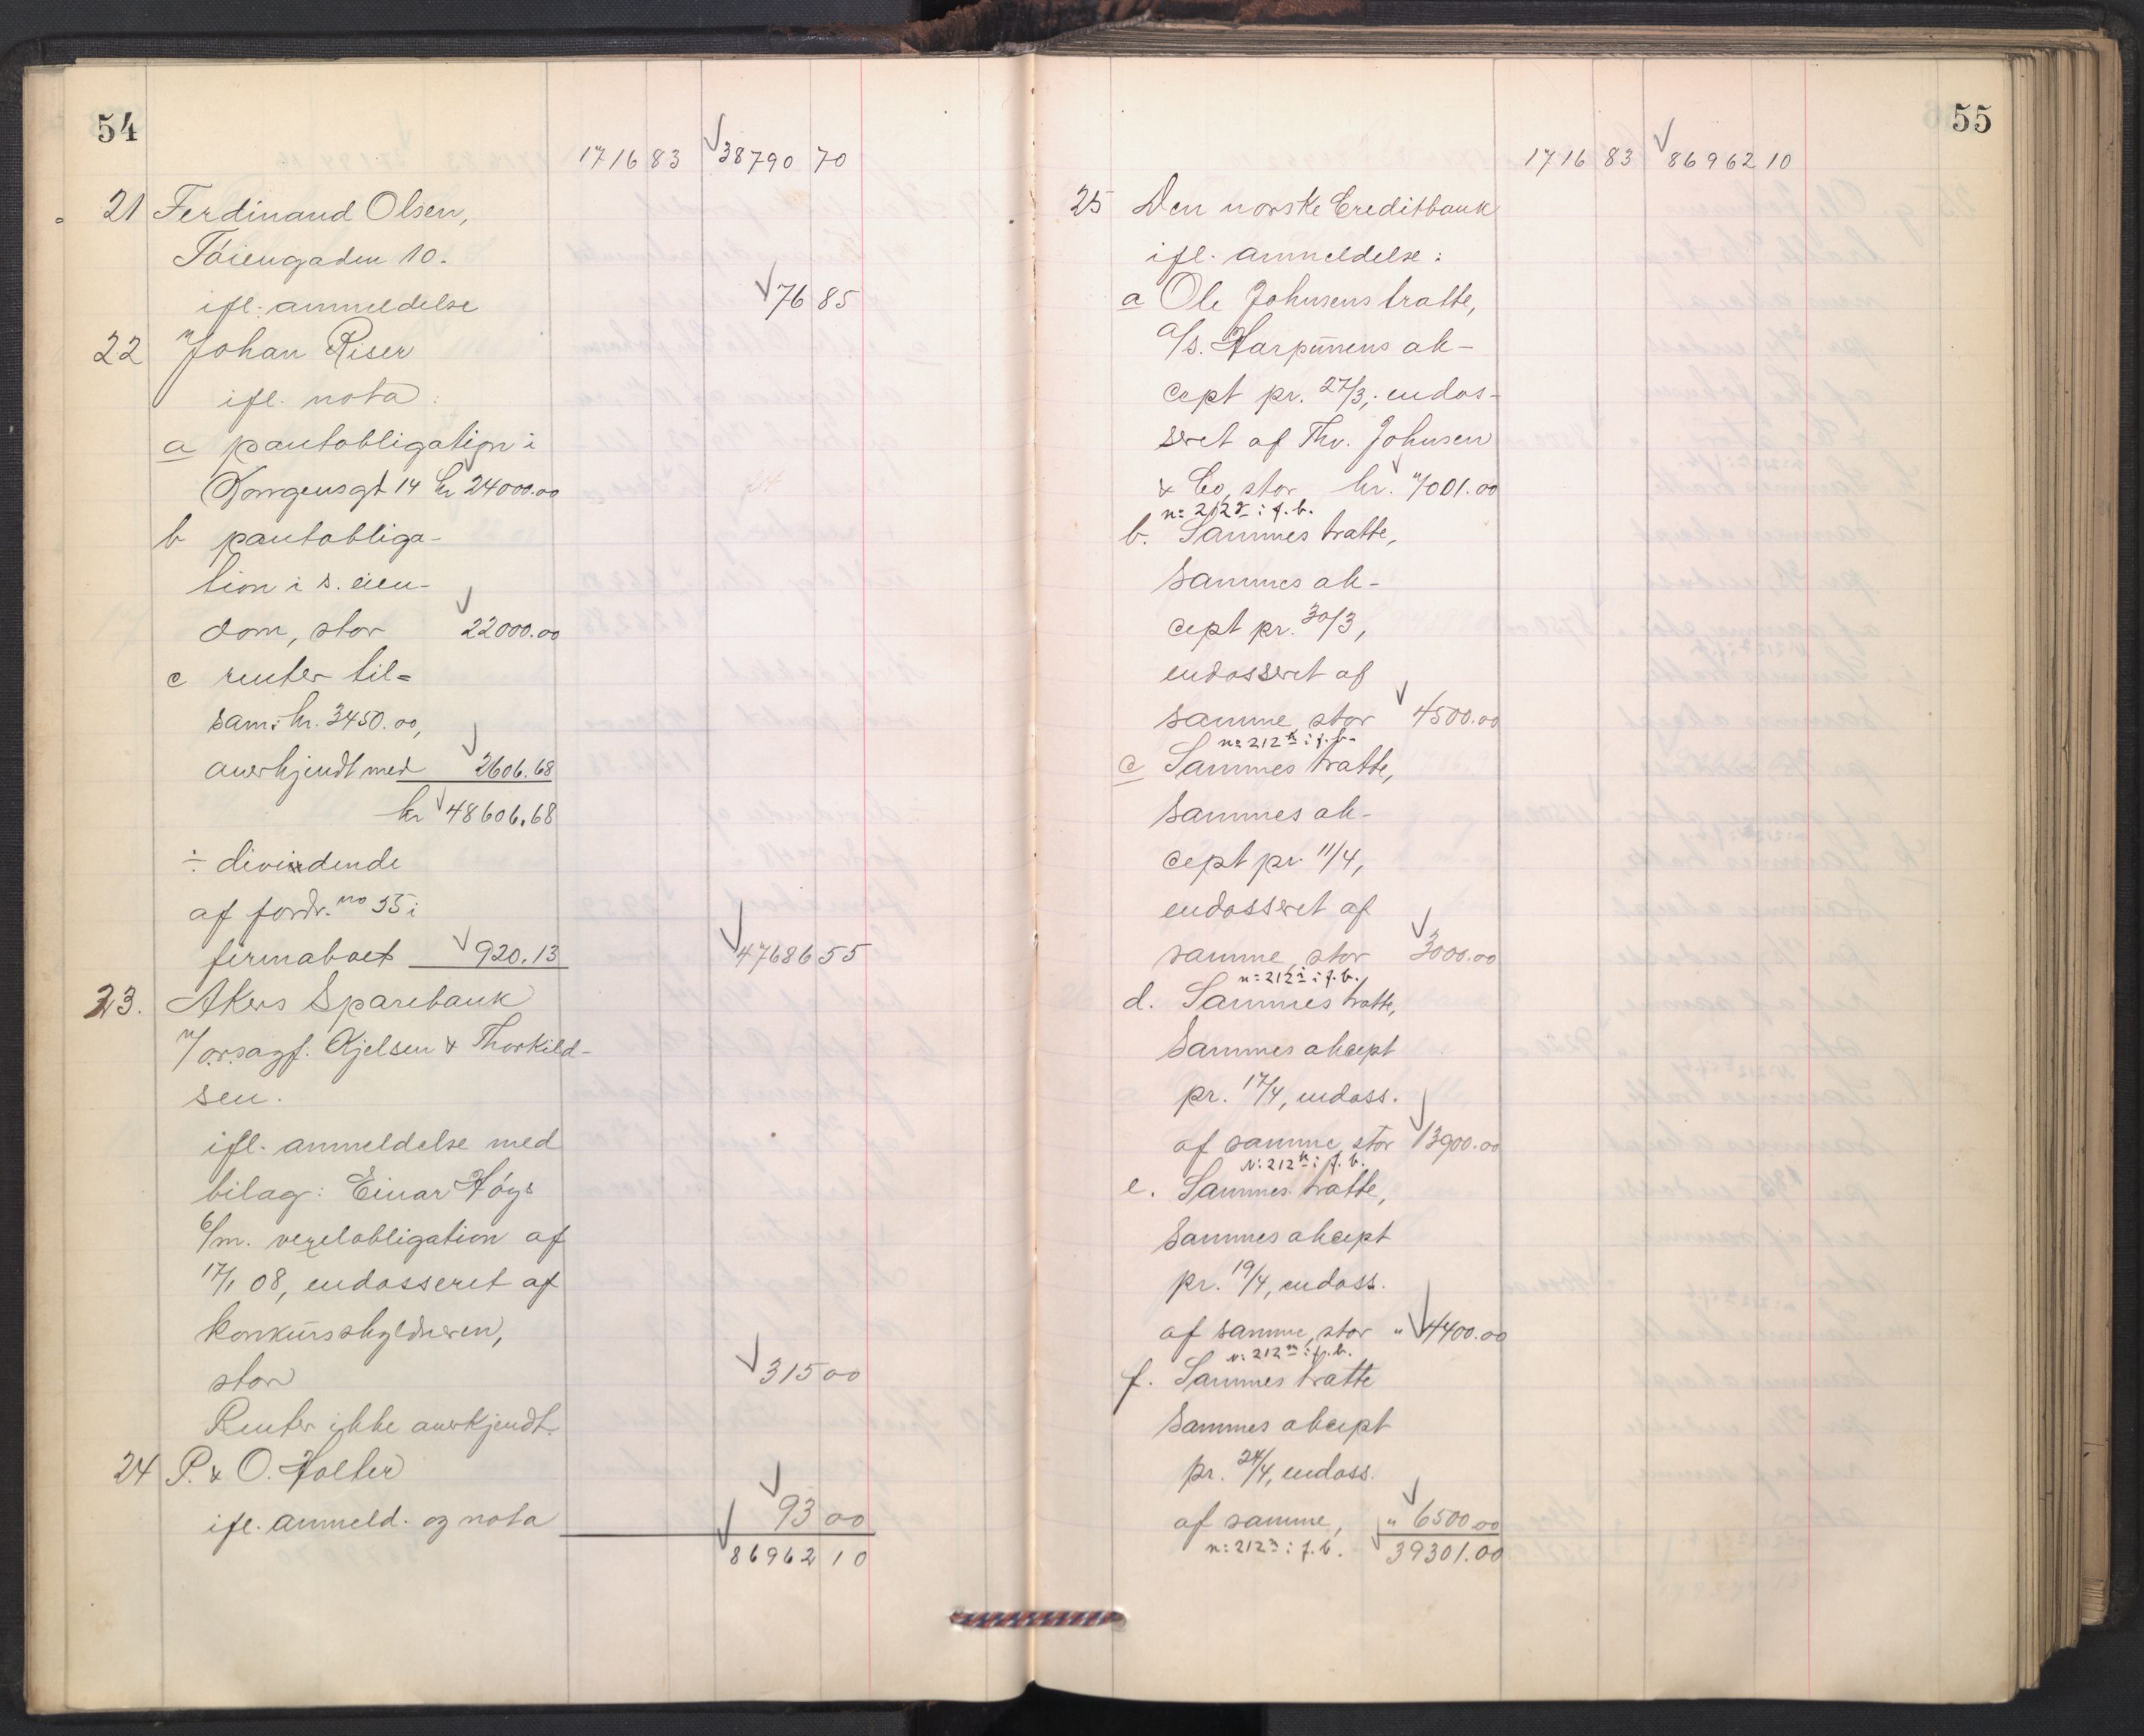 54
1716 83 38790 70
21 Ferdinand Olsen,
Tøiengaden 10.
ifl. anmeldelse 76 85
22 Johan Riser
ifl. nota:
a pantobligation i
Kongensgt 14 kr 24000.00
b pantobliga-
tion i s. eien-
dom, stor 22000.00
c renter til=
sam: kr. 3450.00,
anerkjendt med 2606.68
kr 48606.68
÷ dividende
af fordr. no 35 i
firmaboet 920.13 47686 55
23. Akers Sparebank
v/ orsagf. Kjelsen & Thorkild-
sen.
ifl. anmeldelse med
bilag: Einar Høys
6/m. vexelobligation af
17/1 08, endosseret af
konkursskyldneren,
stor 315 00
Renter ikke anerkjendt.
24 P. & O. Holter
ifl. anmeld. og nota 93 00
86962 10
55
1716 83 86962 10
25 Den norske Creditbank
ifl. anmeldelse:
a Ole Johnsens tratte,
A/S. Harpunens ak-
cept pr. 27/3, endos-
seret af Thv. Johnsen
& Co, stor kr. 7001.00
n: 212 i f. b.
b. Sammes tratte,
sammes ak-
cept pr. 30/3,
endosseret af
samme, stor 4500.00
n: 212 i f. b.
c Sammes tratte,
sammes ak-
cept pr. 11/4,
endosseret af
samme, stor 3000.00
n: 212 i f. b.
d. Sammes tratte,
Sammes akcept
pr. 17/4, endoss.
af samme, stor 13900.00
N: 212 i f. b.
e. Sammes tratte,
Sammes akcept
pr. 19/4, endoss.
af samme, stor " 4400.00
N: 212 i f. b.
f. Sammes tratte
Sammes akcept
pr. 24/4, endoss.
af samme, " 6500.00
n: 212 i f. b. 39301.00